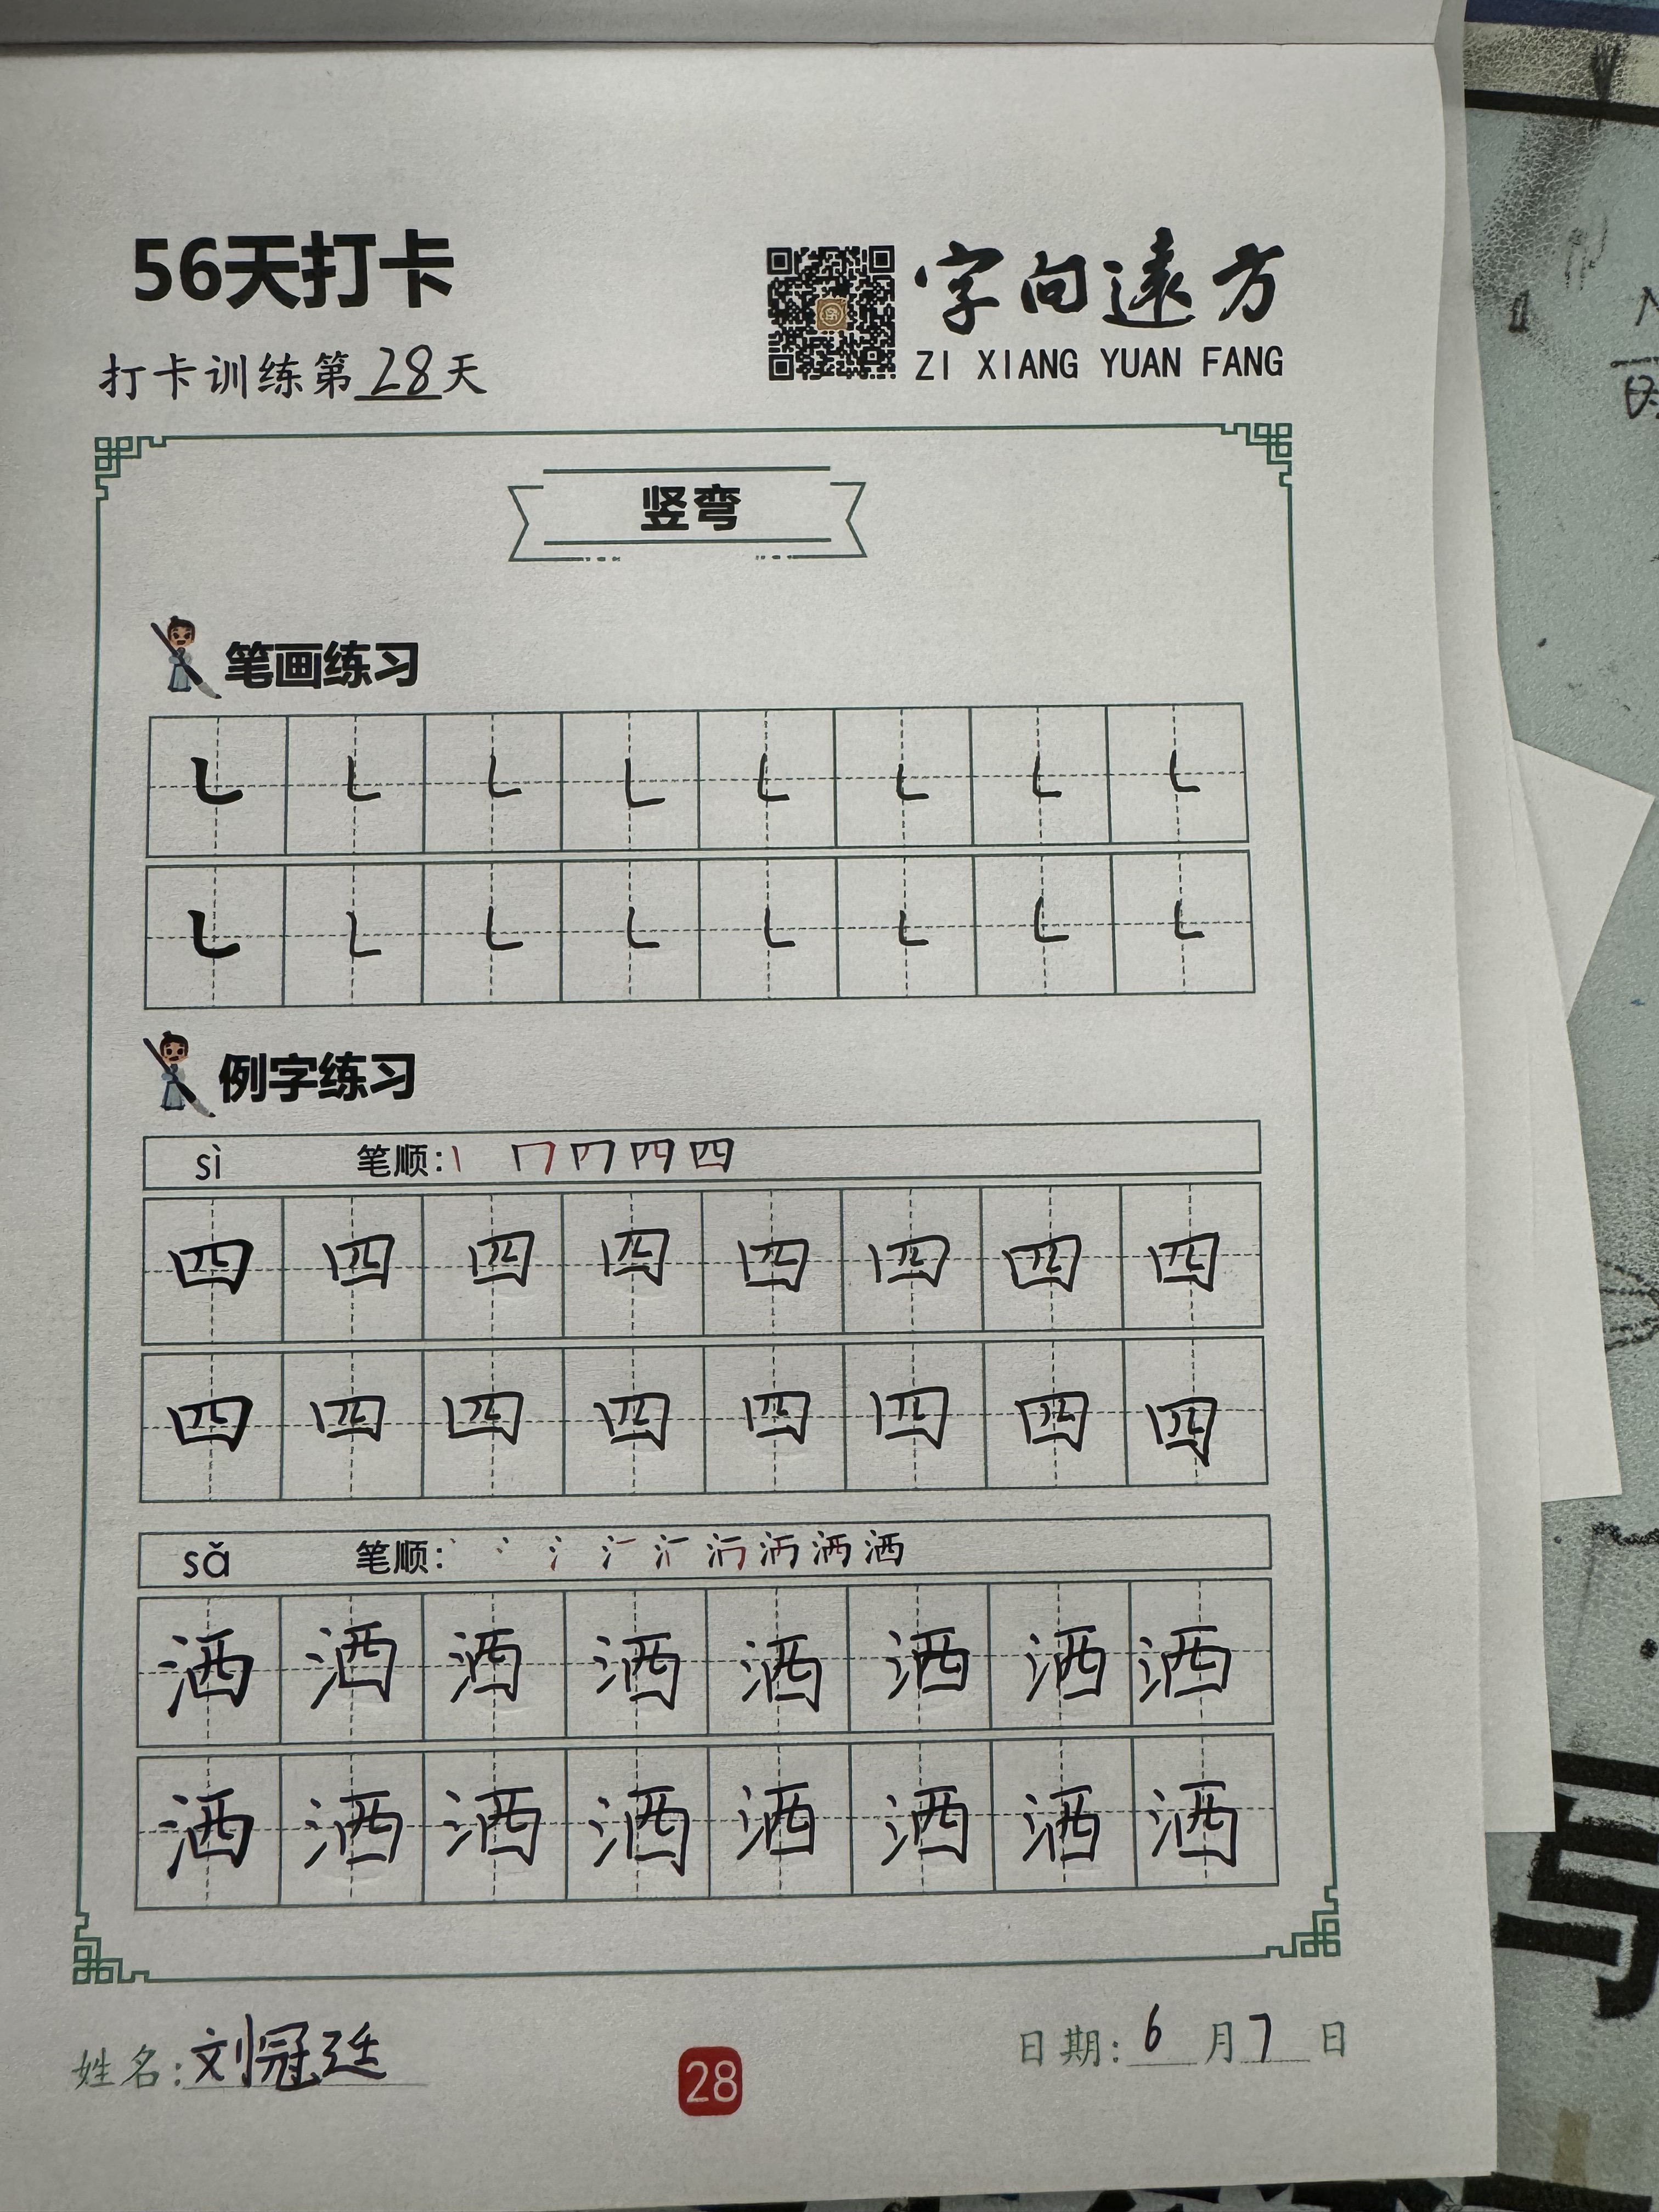 56天打卡
字向遠方
ZI XIANG YUAN FANG
打卡训练第28天
竖弯
笔画练习
㇄ ㇄ ㇄ ㇄ ㇄ ㇄ ㇄ ㇄
㇄ ㇄ ㇄ ㇄ ㇄ ㇄ ㇄ ㇄
例字练习
sì 笔顺: 四
四 四 四 四 四 四 四 四
四 四 四 四 四 四 四 四
sǎ 笔顺: 洒
洒 洒 洒 洒 洒 洒 洒 洒
洒 洒 洒 洒 洒 洒 洒 洒
姓名:刘冠廷
28
日期:6月7日
写